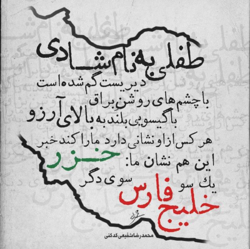 طفلی به نام شادی
دیریست گم شده است
با چشم‌های روشن براق
با گیسویی بلند به بالای آرزو
هر کس از او نشانی دارد ما را کند خبر
این هم نشان ما: خزر
یک سو سوی دگر
خلیج فارس
محمدرضا شفیعی کدکنی